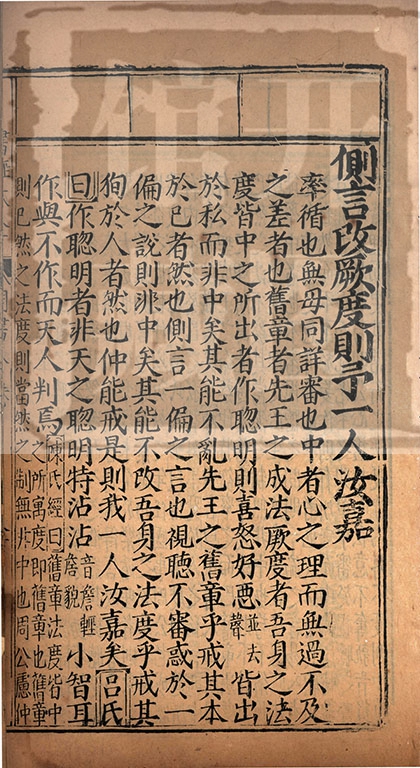 側言改厥度則予一人汝嘉
率循也無毋同詳審也中者心之理而無過不及
之差者也舊章者先王之成法厥度者吾身之法
度皆中之所出者作聦明則喜怒好惡並去聲皆出
於私而非中矣其能不亂先王之舊章乎戒其本
於已者然也側言一偏之言也視聽不審惑於一
偏之說則非中矣其能不改吾身之法度乎戒其
徇於人者然也仲能戒是則我一人汝嘉矣呂氏
曰作聦明者非天之聦明特沾沾小智耳
作與不作而天人判焉陳氏經曰舊章法度皆中之所寓度即舊章也舊章
則已然之法度則當然之制無非中也周公慮仲